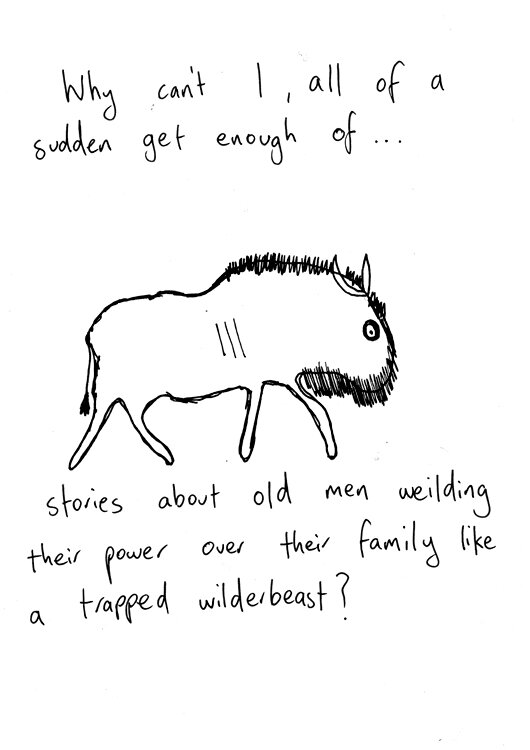 Why can't I, all of a
sudden get enough of...
stories about old men weilding
their power over their family like
a trapped wilderbeast?